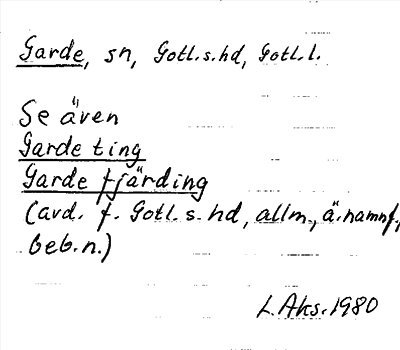 Garde, sn, Gotl.s.hd, Gotl.l.
Se även
Garde ting
Garde fjärding
(avd. f. Gotl.s.hd, allm., ä.namnf.,
beb.n.)
L.Aks.1980